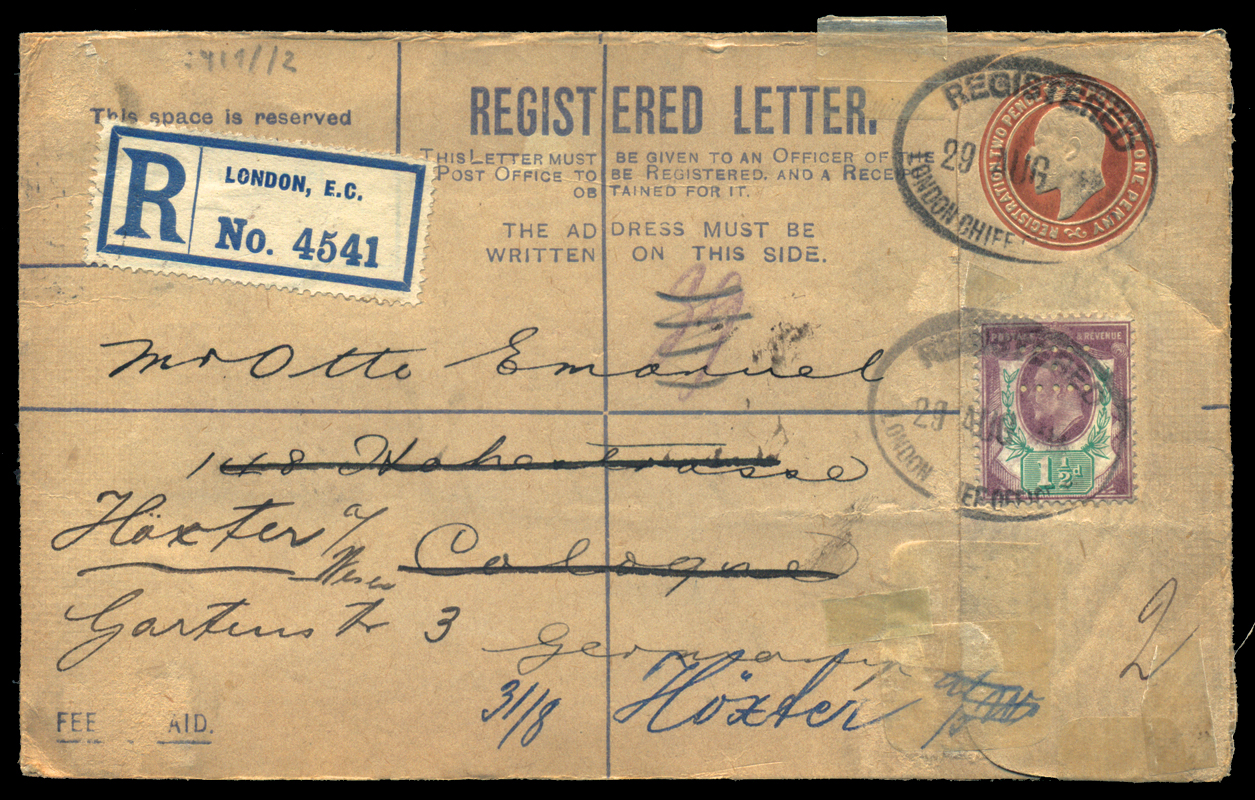 This space is reserved
R
LONDON, E.C.
No. 4541
REGISTERED LETTER.
THIS LETTER MUST BE GIVEN TO AN OFFICER OF THE
POST OFFICE TO BE REGISTERED, AND A RECEIPT
OBTAINED FOR IT.
THE ADDRESS MUST BE
WRITTEN ON THIS SIDE.
REGISTERED
29 AUG
LONDON CHIEF
REGISTRATION TWO PENCE
ONE PENNY
& REVENUE
1½d
29 AUG
LONDON CHIEF OFFICE
Mr Otto Emanuel
148 Hohestrasse
Cologne
Germany
Höxter a/
Weser
Gartenstr 3
31/8 Höxter
2
FEE AID.